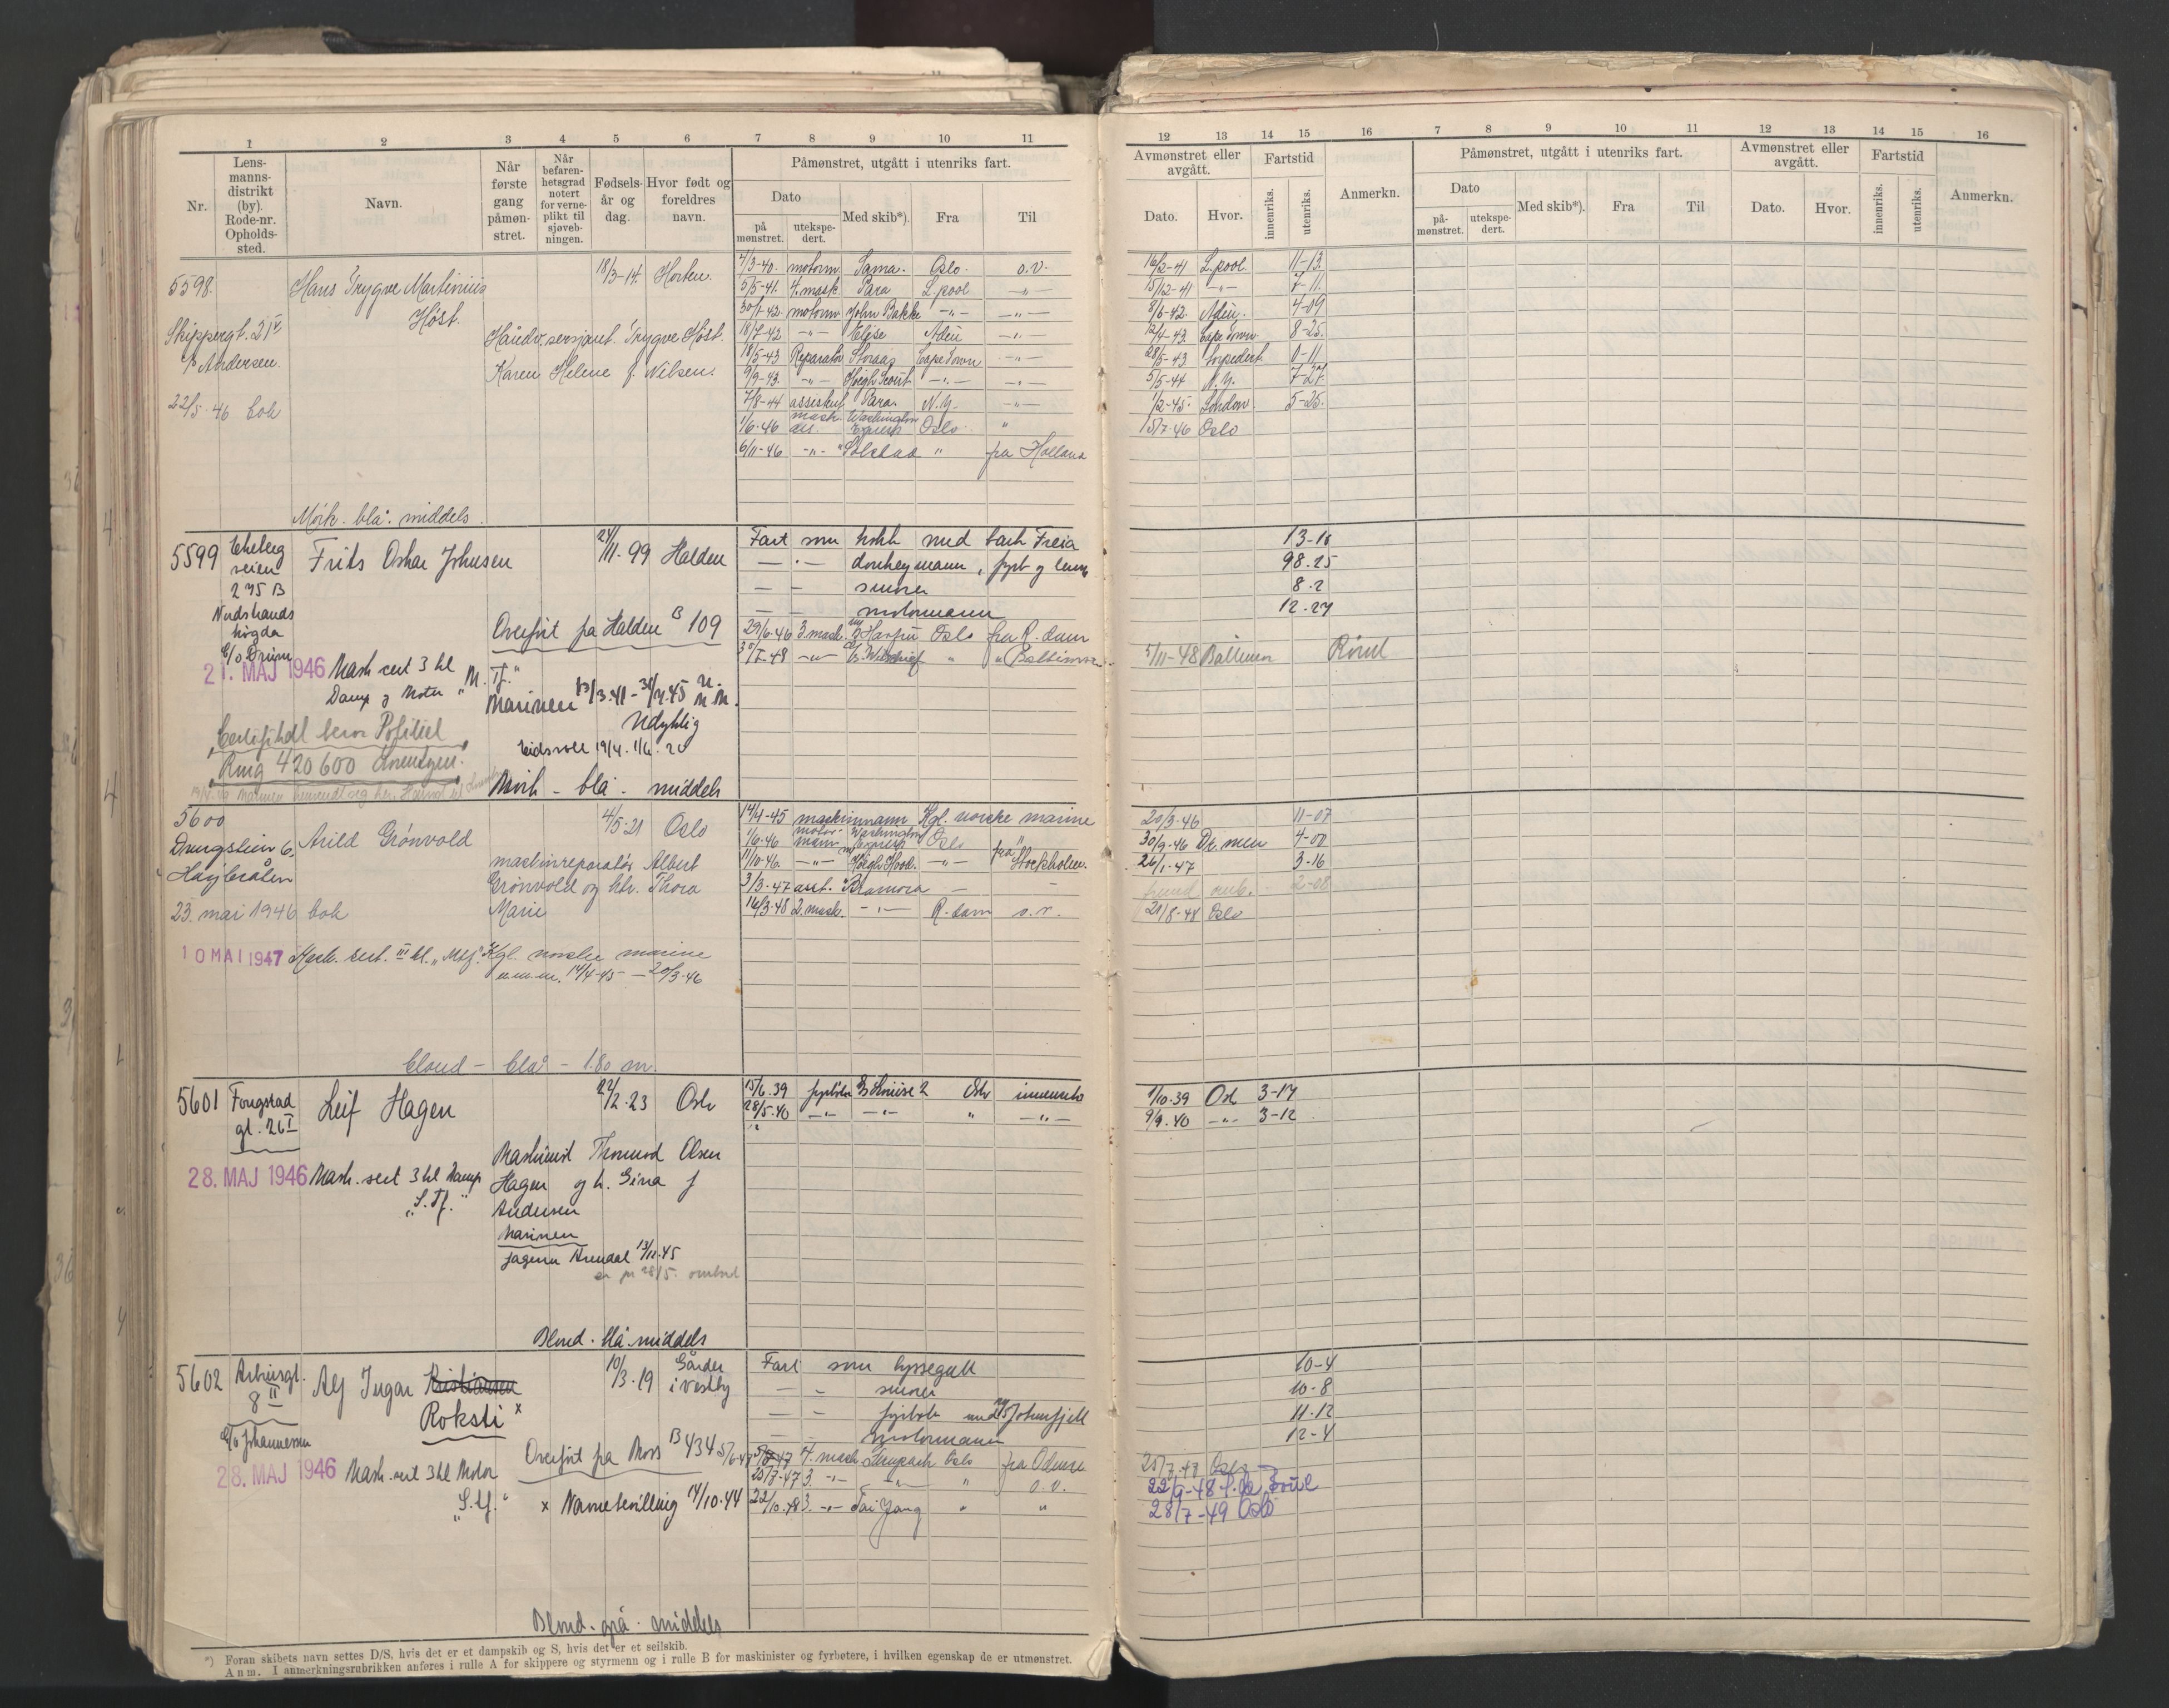 1 2 3 4 5 6 7 8 9 10 11
Nr.
Lens-
manns-
distrikt
(by).
Rode-nr.
Opholds-
sted.
Navn.
Når
første
gang
påmøn-
stret.
Når
befaren-
hetsgrad
notert
for verne-
plikt til
sjøveb-
ningen.
Fødsels-
år og
dag.
Hvor født og
foreldres
navn.
Påmønstret, utgått i utenriks fart.
Dato
på
mønstret.
utekspe-
dert.
Med skib*).
Fra
Til
12 13 14 15 16 7 8 9 10 11 12 13 14 15 16
Avmønstret eller
avgått.
Dato.
Hvor.
Fartstid
innenriks.
utenriks.
Anmerkn.
Påmønstret, utgått i utenriks fart.
Dato
på-
mønstret.
utekspe-
dert.
Med skib*).
Fra
Til
Avmønstret eller
avgått.
Dato.
Hvor.
Fartstid
innenriks.
utenriks.
Anmerkn.
5598. Hans Trygve Martinius
Høst.
18/3-14. Horten.
Skippergt. 21
Andersen.
Håndv. sersjant Trygve Høst.
Karen Helene f. Nilsen.
22/5-46 bok
4/3-40. motorm Sama. Oslo. o.v. 16/2-41 L.pool. 11-13
5/5-41. 4. mask. Para L.pool -"- 15/12-41 -"- 7-11.
30/1-42. motorm John Bakke -"- -"- 8/6-42. Aden. 4-09
18/7-42 -"- Elise Aden -"- 12/4-43. Cape Town 8-25.
18/5-43 Reparatør Storaag Cape Town -"- 28/5-43 torpedert. 0-11
9/9-43. -"- Høegh Scout -"- -"- 5/5-44 N.Y. 7-27
7/8-44 assiskuf Para. N.Y. -"- 1/2-45. London. 5-25.
1/6-46 mask. ass. Washington Express Oslo " 15/7-46 Oslo
6/11-46 -"- Solstad " fra Holland
Mørk. blå. middels.
5599 Ekeberg
veien
275 B
Nordstrands
høgda
c/o Drüm
Frits Oskar Johnsen
24/11-99 Halden
Fart som kokk med bark Freia 13-18
-"- donkeymann, fyrb og lemp 98.25
- - smører 8.2
- - motormann 12.27
Overført på Halden B 109
29/6-46 3 mask Harpu Oslo fra R.dam
-48 -"- " " Baltimore
5/11-48 Baltimore
21. MAJ 1946 Mask cert 3 kl
Damp og Motor "M. Tf."
Marinen 13/3.41 - 31/7.45 U.
M.M.
Udyktig
Eidsvoll 19/4. 1/6. 20
Ring 420600
Mørk - blå - middels
5600
Arild Grønvold
4/5-21 Oslo
Høybråten
maskinreparatør Albert
Grønvold og htr. Thora
Marie
23. mai 1946 bok
14/4-45 maskinmann Kgl. norske marine 20/3-46 11-07
1/6-46 motor-mann Washington Express Oslo " 30/9-46 Dr.men 4-00
11/10-46. -"- Høegh Hood. -"- fra Stockholm. 26/1-47 3-16
3/3-47 asst. Bramora - - 2-08
16/3-48 2. mask. -"- R.dam o.v. 21/8-48 Oslo
10 MAI 1947 Mask. sert. III kl. "M.tf". Kgl. norske marine
u.m.m. 14/4-45 - 20/3-46
Blond - blå - 1.80 m.
5601 Fougstad
gt. 26 I
Leif Hagen
22/2.23 Oslo
15/6.39 fyrbøter Oslo innenriks 1/10.39 Osl 3-17
28/5.40 -"- -"- " -"- 9/9.40 -"- 3-12
Maskinist Thorund Olsen
Hagen og h. Gina f
Andersen
28. MAJ 1946 Mask. sert 3 kl Damp
"S. Tf."
Marinen
Jageren Arendal 13/12.45
er pr 28/5. ombord
Blond. blå. middels
5602 Arbiensgt.
8 II
c/o Johannessen
Alf Ingar Kristiansen
Roksti x
10/3.19 Gårder
i Vestby
Fart som dyssegutt 10-4
- - smører 10-8
- - fyrbøter med Johnsfjell 11.12
- - motormann 12-4
Overført på Moss B 434 5/6-47
4. mask Oslo fra Odense
20/8-47 3. -"- " " o.v.
22/10.48 3. -"- Tai Yang " "
28. MAJ 1946 Mask. sert 3 kl Motor
x Navnebevilling 14/10.44
28/7-49 Oslo
Blond. grå. middels
*) Foran skibets navn settes D/S, hvis det er et dampskib og S, hvis det er et seilskib.
Anm. I anmerkningsrubrikken anføres i rulle A for skippere og styrmenn og i rulle B for maskinister og fyrbøtere, i hvilken egenskap de er utmønstret.